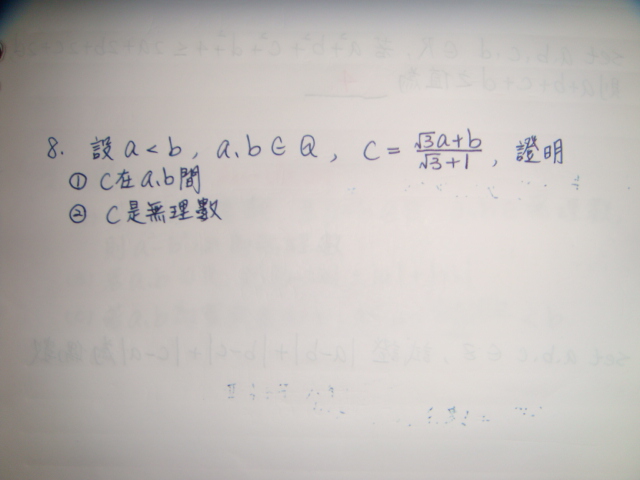 8. 設 a < b , a、b ∈ Q , c = (√3a+b)/(√3+1) , 證明
① c在a、b間
② c是無理數